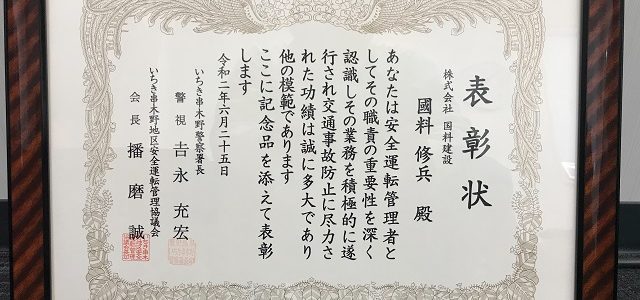 表彰状
株式会社 国料建設
國料 修兵 殿
あなたは安全運転管理者と
してその職責の重要性を深く
認識しその業務を積極的に遂
行され交通事故防止に尽力さ
れた功績は誠に多大であり
他の模範であります
ここに記念品を添えて表彰
します
令和二年六月二十五日
いちき串木野警察署長
警視 吉永充宏
いちき串木野地区安全運転管理協議会
会長 播磨 誠